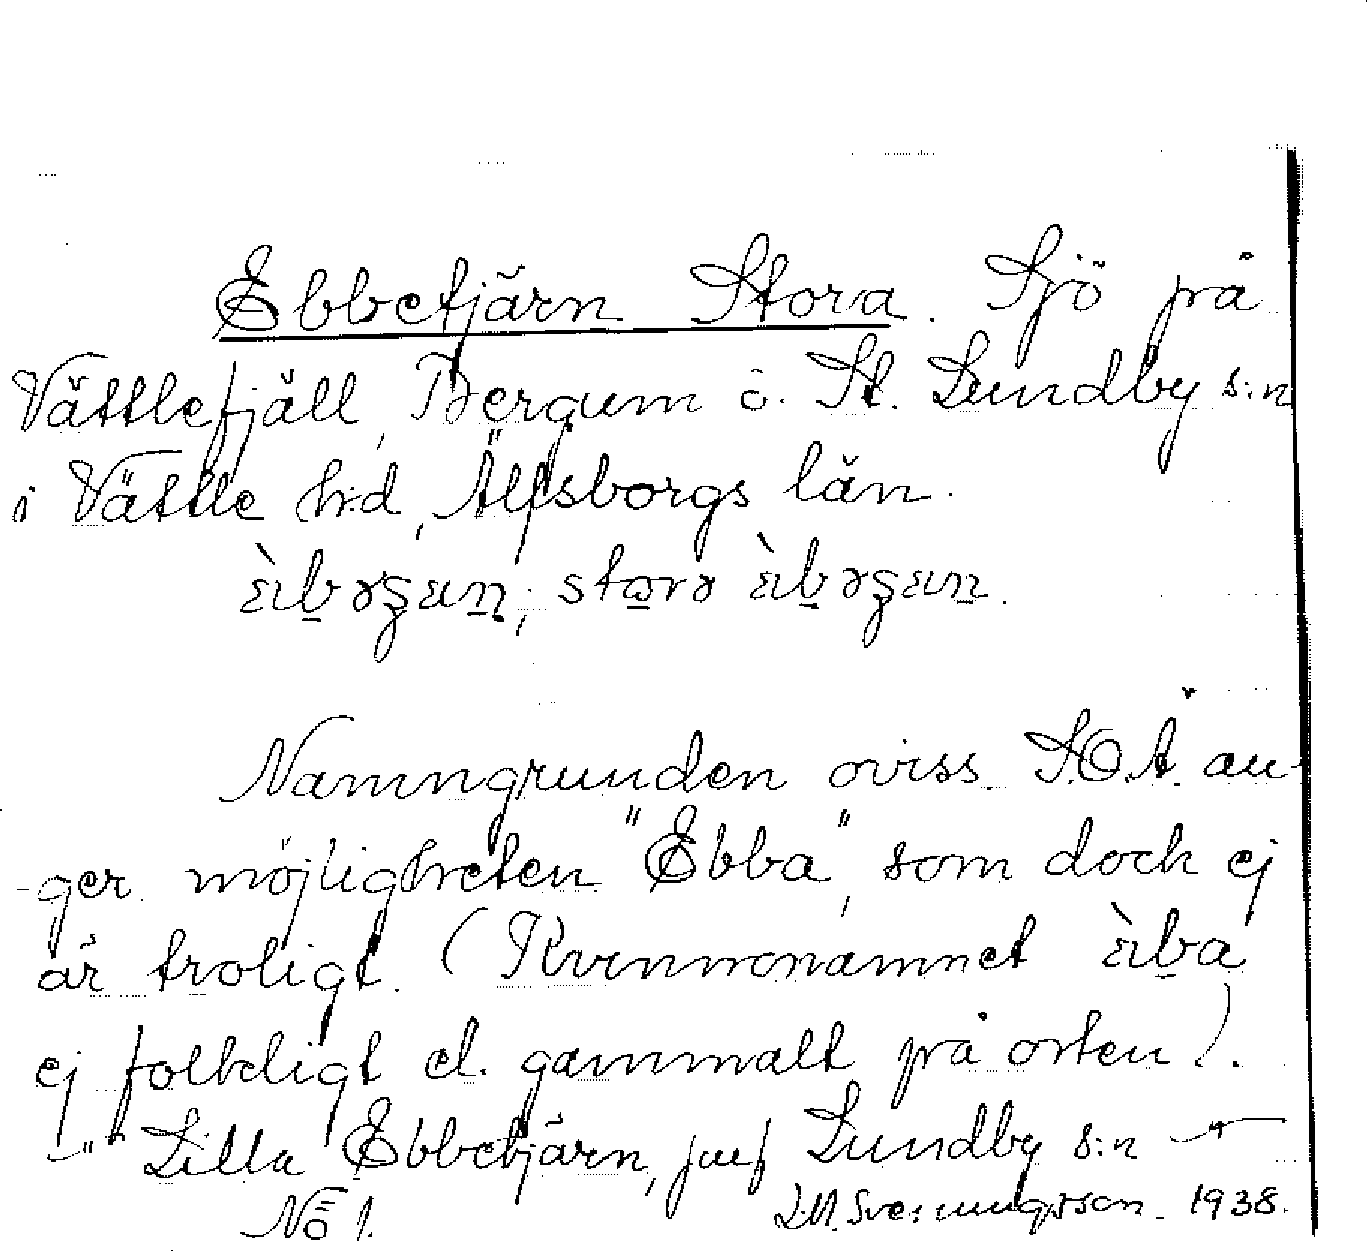 Ebbetjärn Stora. Sjö på
Vättlefjäll, Bergum o. St. Lundby s:n
i Vättle h:d, Älfsborgs län.
Namngrunden oviss. S.O.Ä. an-
ger möjligheten "Ebba", som doch ej
är troligt. (Kvinnonamnet
ej folkeligt el. gammalt på orten).
-"- Lilla Ebbetjärn, jmf Lundby s:n
No 1. 1938.